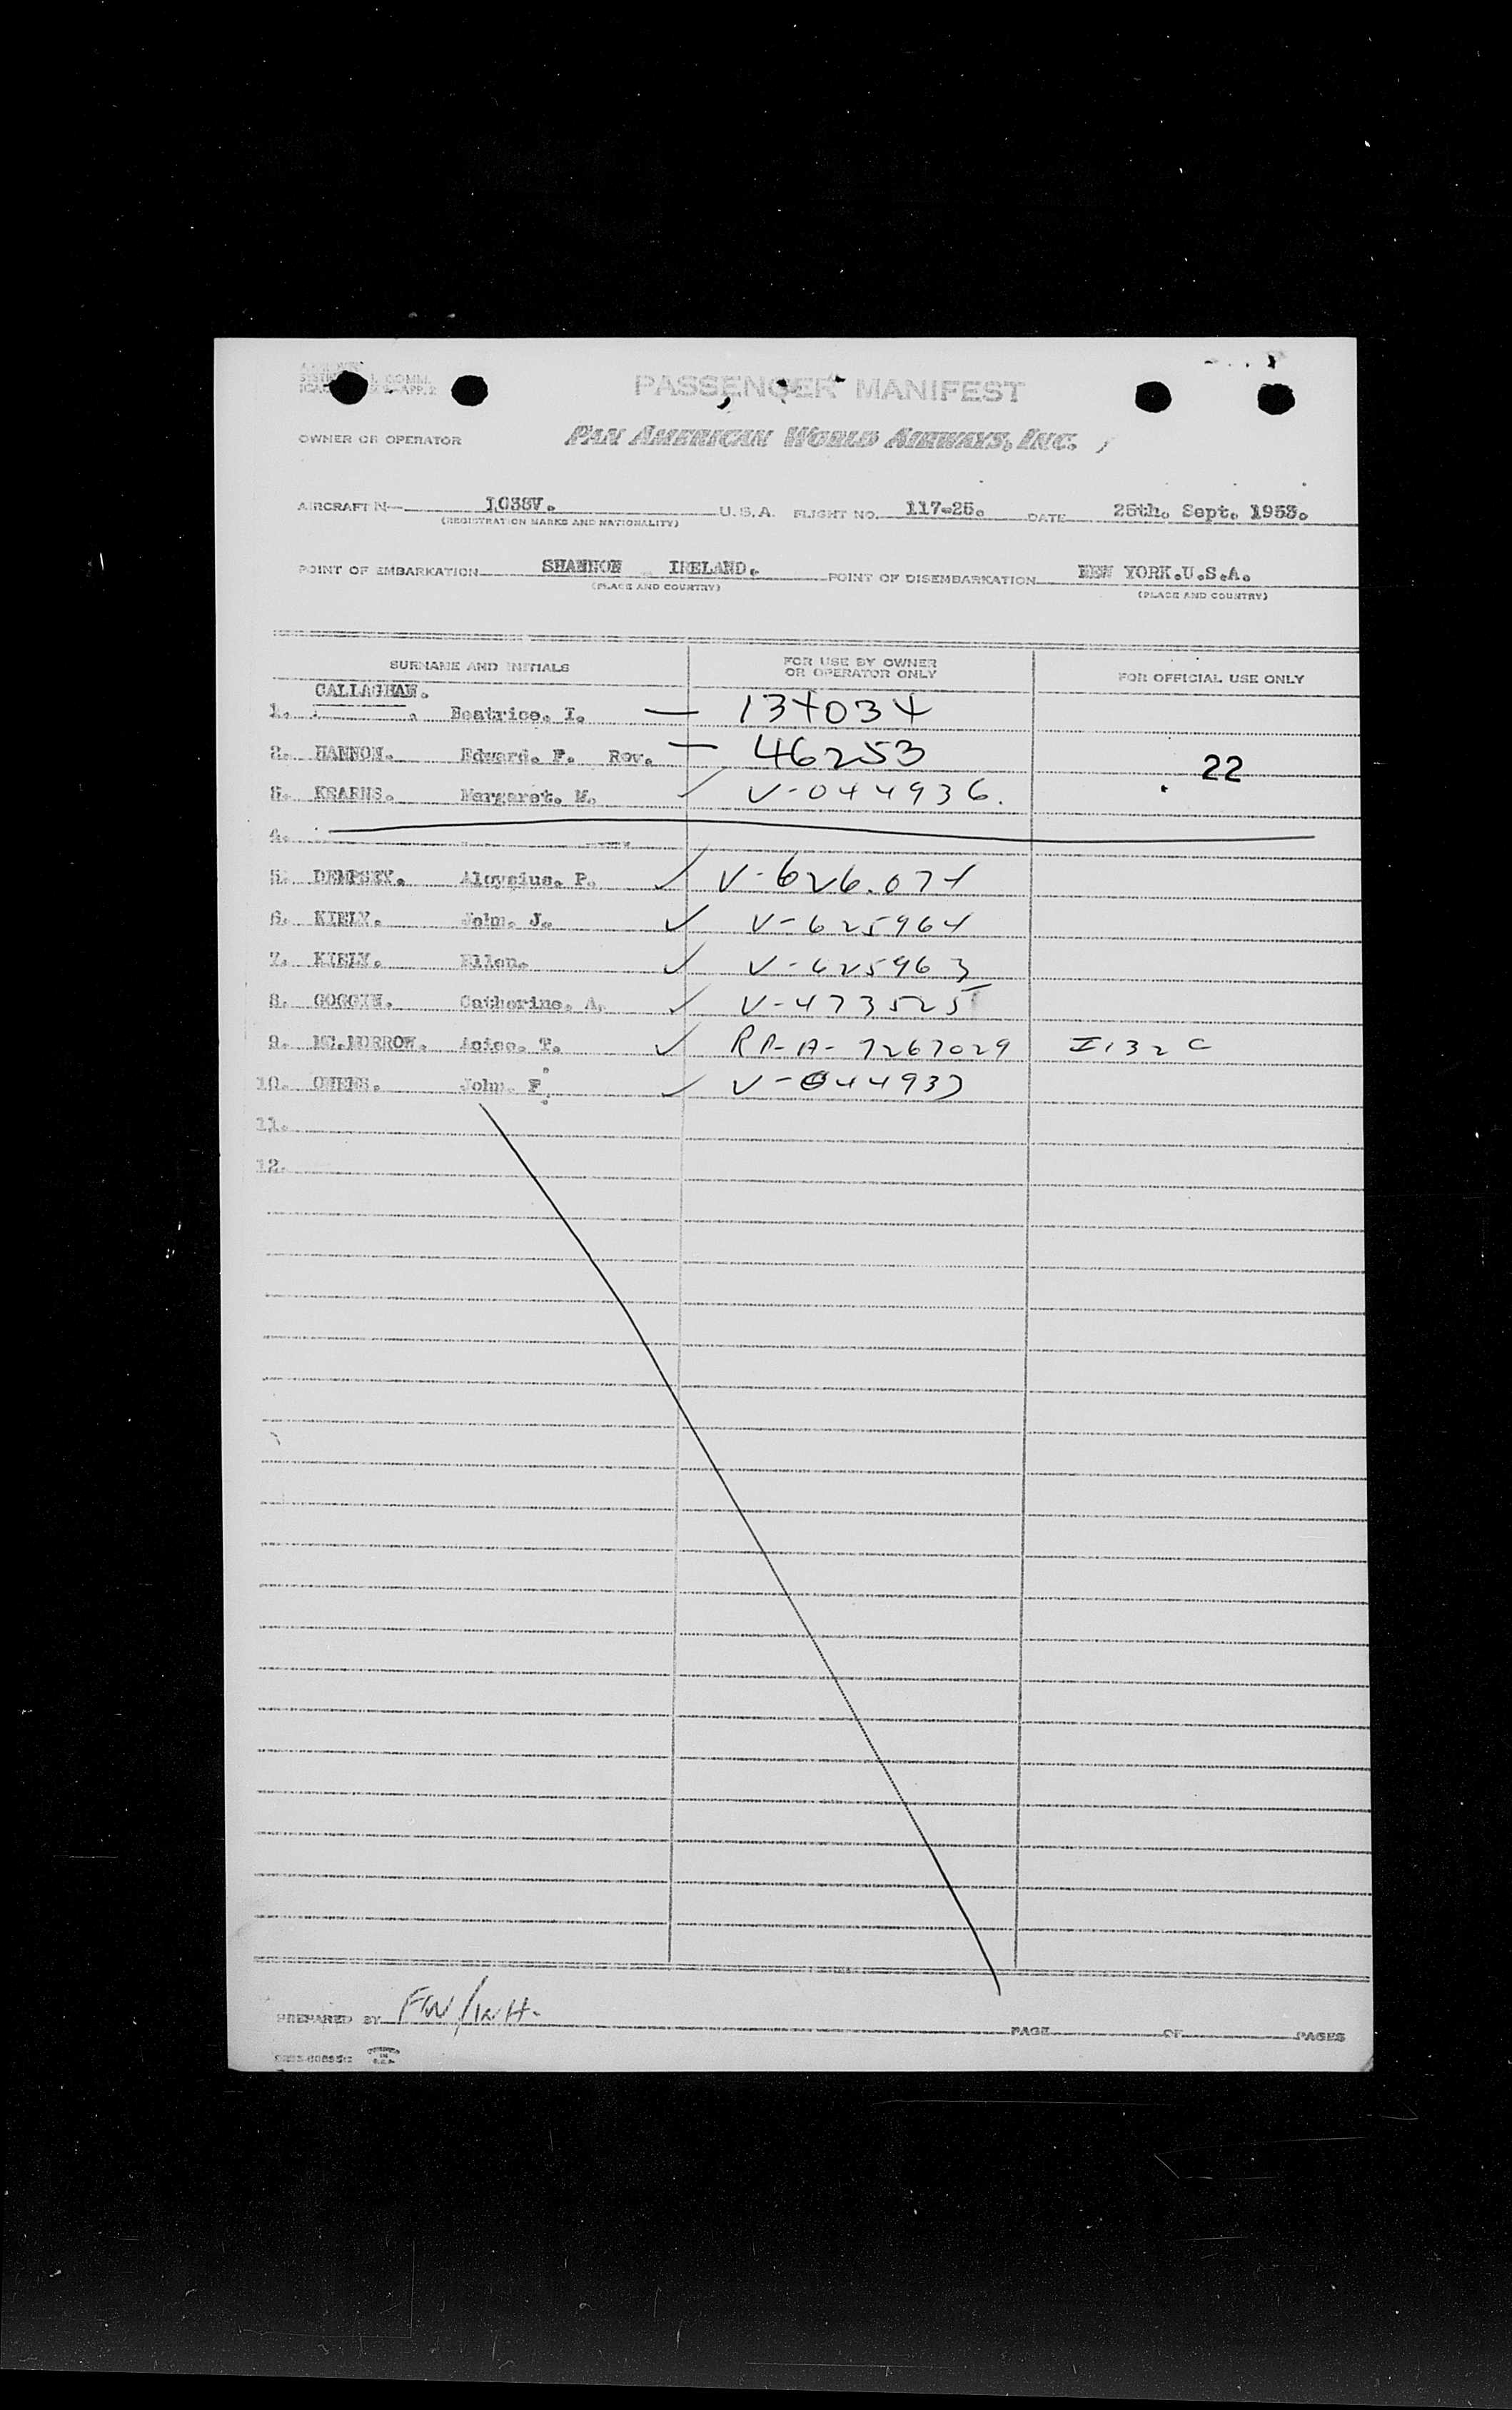 COMM.
APP. 2
PASSENGER MANIFEST
OWNER OR OPERATOR PAN AMERICAN WORLD AIRWAYS, INC.
AIRCRAFT N— 1033V. U.S.A. FLIGHT NO. 117-25. DATE 25th. Sept. 1953.
(REGISTRATION MARKS AND NATIONALITY)
POINT OF EMBARKATION SHANNON IRELAND. POINT OF DISEMBARKATION NEW YORK.U.S.A.
(PLACE AND COUNTRY) (PLACE AND COUNTRY)
SURNAME AND INITIALS FOR USE BY OWNER OR OPERATOR ONLY FOR OFFICIAL USE ONLY
CALLAGHAN.
1. Beatrice. I. — 134034
2. HANNON. Edward. F. Rev. — 46253 22
3. KEARNS. Margaret. M. V-044936.
4.
5. DEMPSEY. Aloysius. P. ✓ V-626.074
6. KIELY. John. J. ✓ V-625964
7. KIELY. Ellen. ✓ V-625963
8. GOGGIN. Catherine. A. ✓ V-473525
9. MC.MORROW. T. ✓ RP-A-7267029 I132C
10. OWENS. John. F. ✓ V-044937
11.
12.
PREPARED BY FW/WH. PAGE OF PAGES